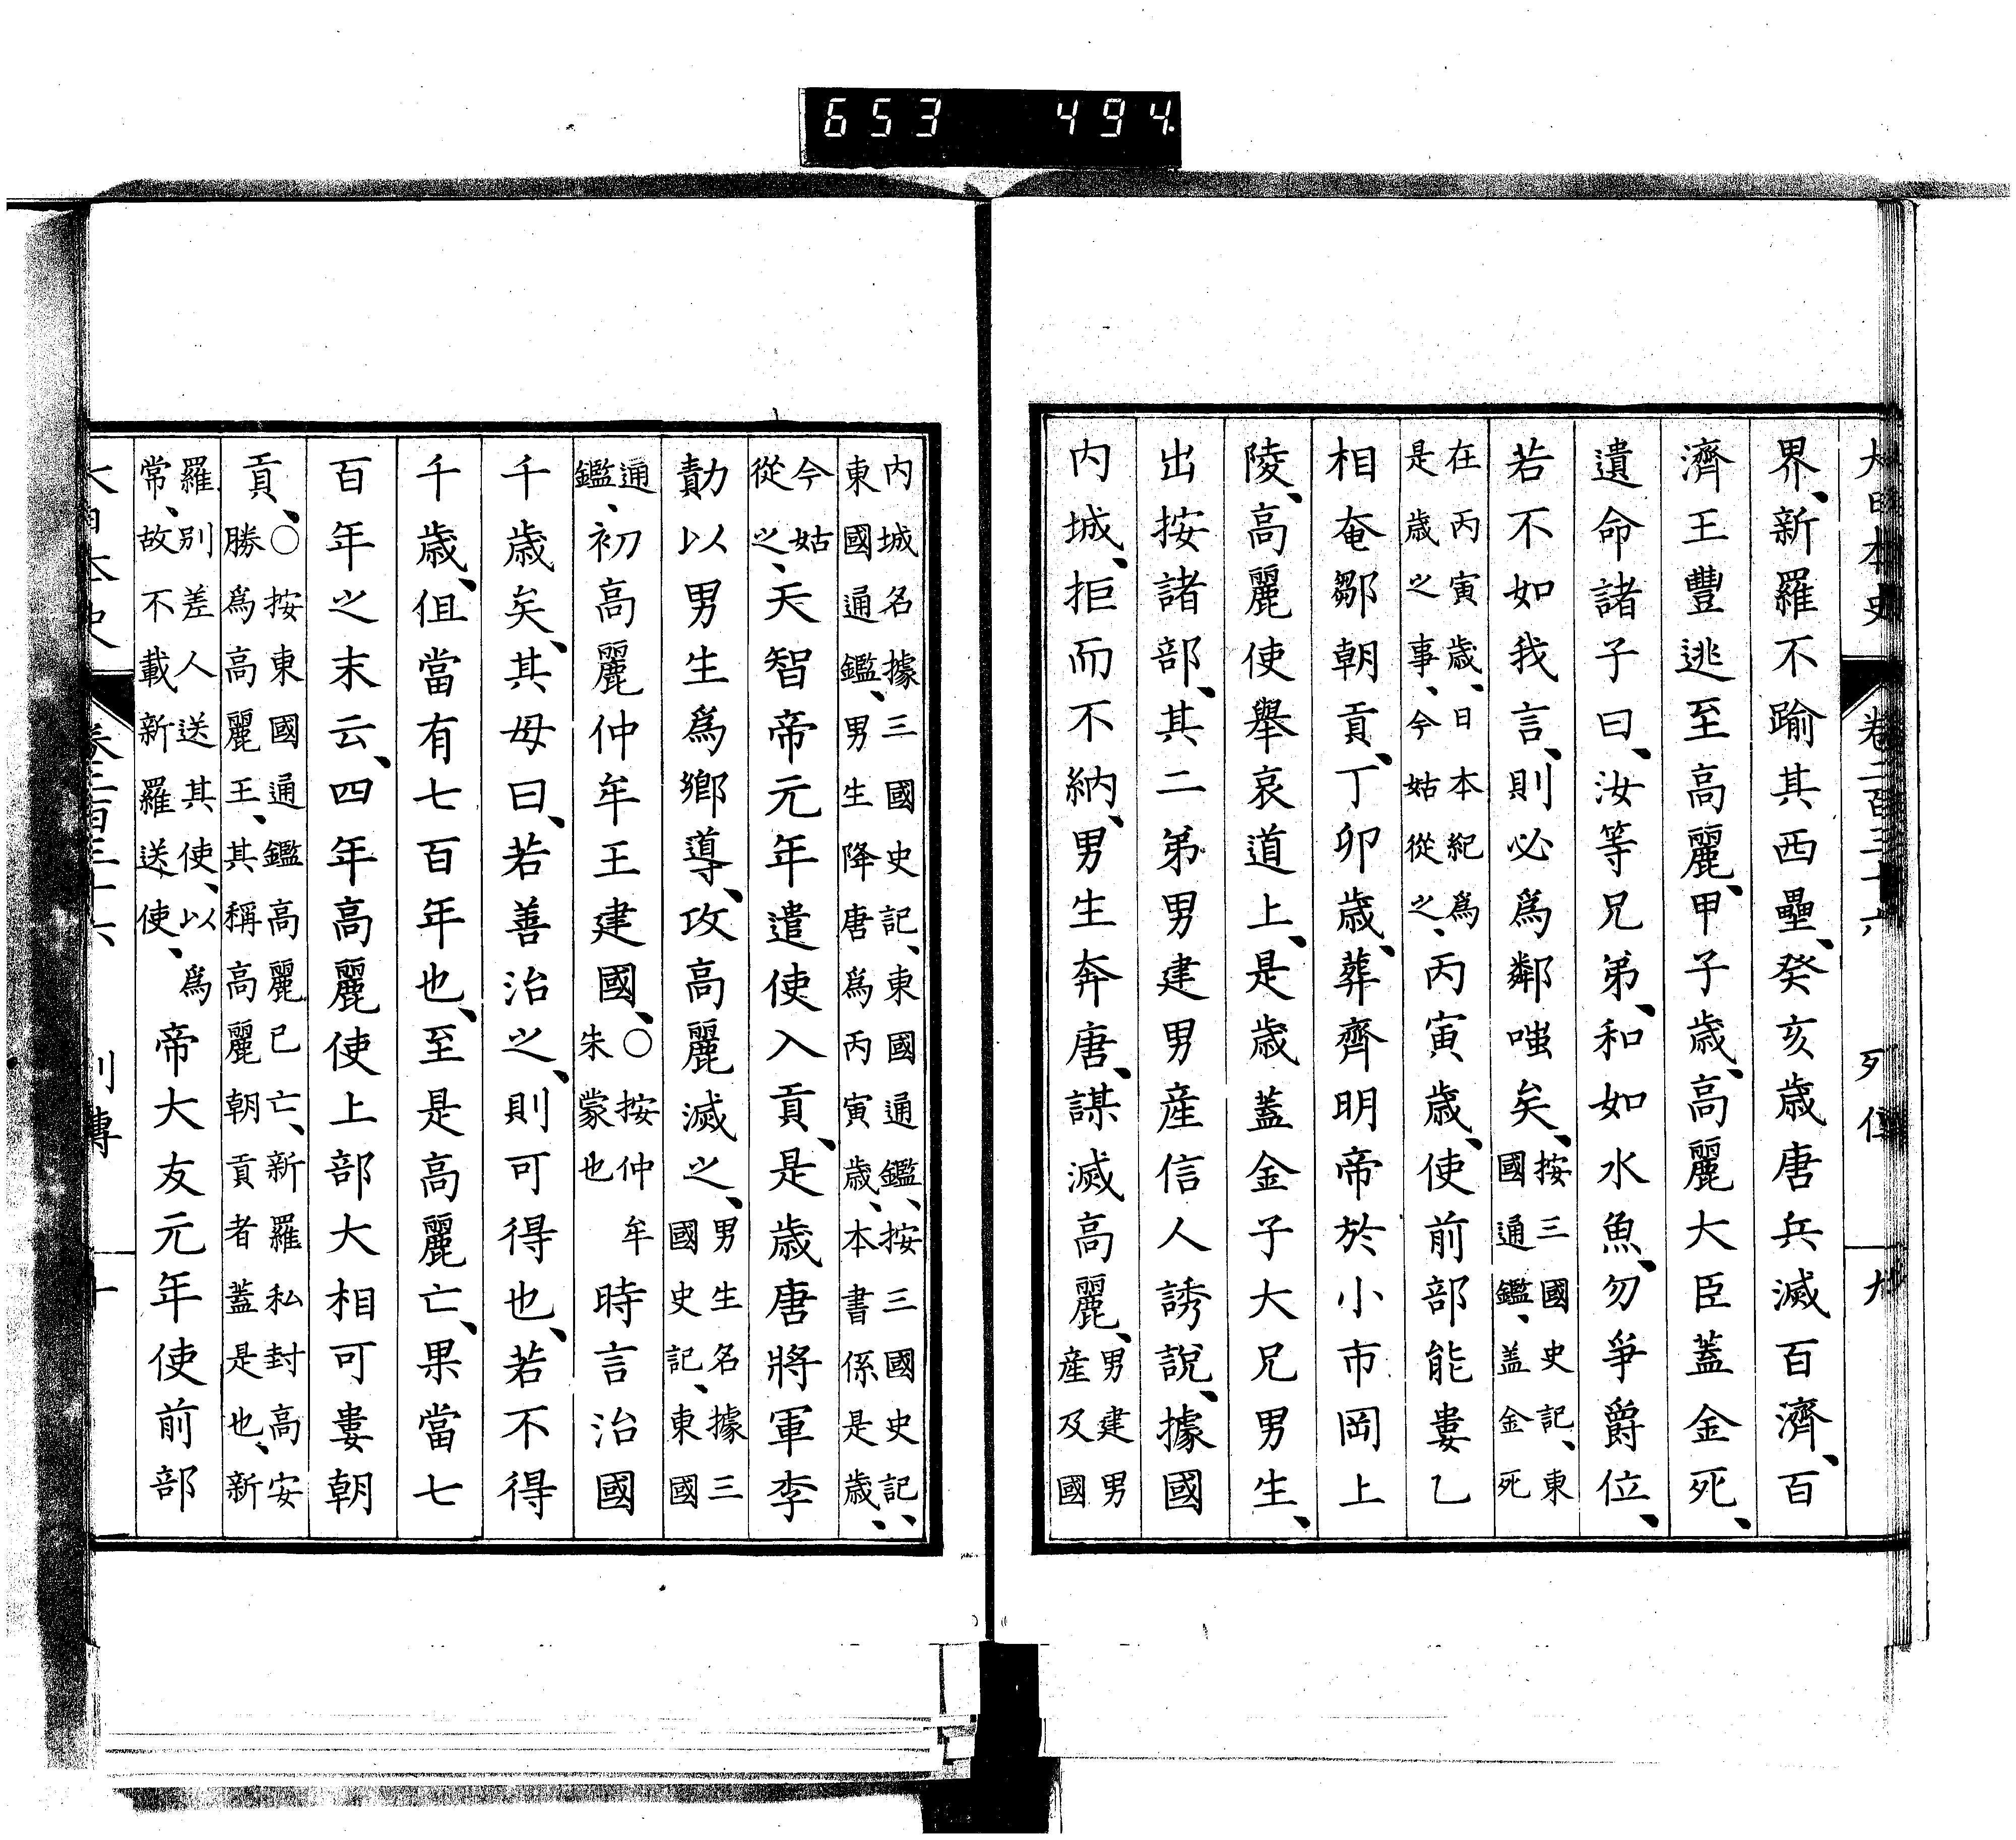 653 494
大日本史 卷二百三十六 列傳 九
界、新羅不踰其西壘、癸亥歲唐兵滅百濟、百
濟王豐逃至高麗、甲子歲、高麗大臣蓋金死、
遺命諸子曰、汝等兄弟、和如水魚、勿爭爵位、
若不如我言、則必爲鄰嗤矣、按三國史記、東國通鑑、蓋金死
在丙寅歲、日本紀爲是歲之事、今姑從之、丙寅歲、使前部能婁乙
相奄鄒朝貢、丁卯歲、葬齊明帝於小市岡上
陵、高麗使舉哀道上、是歲蓋金子大兄男生、
出按諸部、其二弟男建男產信人誘說、據國
內城、拒而不納、男生奔唐、謀滅高麗、男建男產及國
內城名據三國史記、東國通鑑、按三國史記、東國通鑑、男生降唐爲丙寅歲、本書係是歲、
今姑從之、天智帝元年遣使入貢、是歲唐將軍李
勣以男生爲鄉導、攻高麗滅之、男生名據三國史記、東國
通鑑、初高麗仲牟王建國、○按仲牟朱蒙也時言治國
千歲矣、其母曰、若善治之、則可得也、若不得
千歲、但當有七百年也、至是高麗亡、果當七
百年之末云、四年高麗使上部大相可婁朝
貢、○按東國通鑑高麗已亡、新羅私封高安勝爲高麗王、其稱高麗朝貢者蓋是也、新
羅別差人送其使、以爲常、故不載新羅送使、帝大友元年使前部
大日本史 卷二百三十六 列傳 十